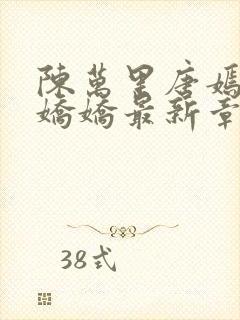 陳萬里唐嫣
嬌嬌最新章
38式